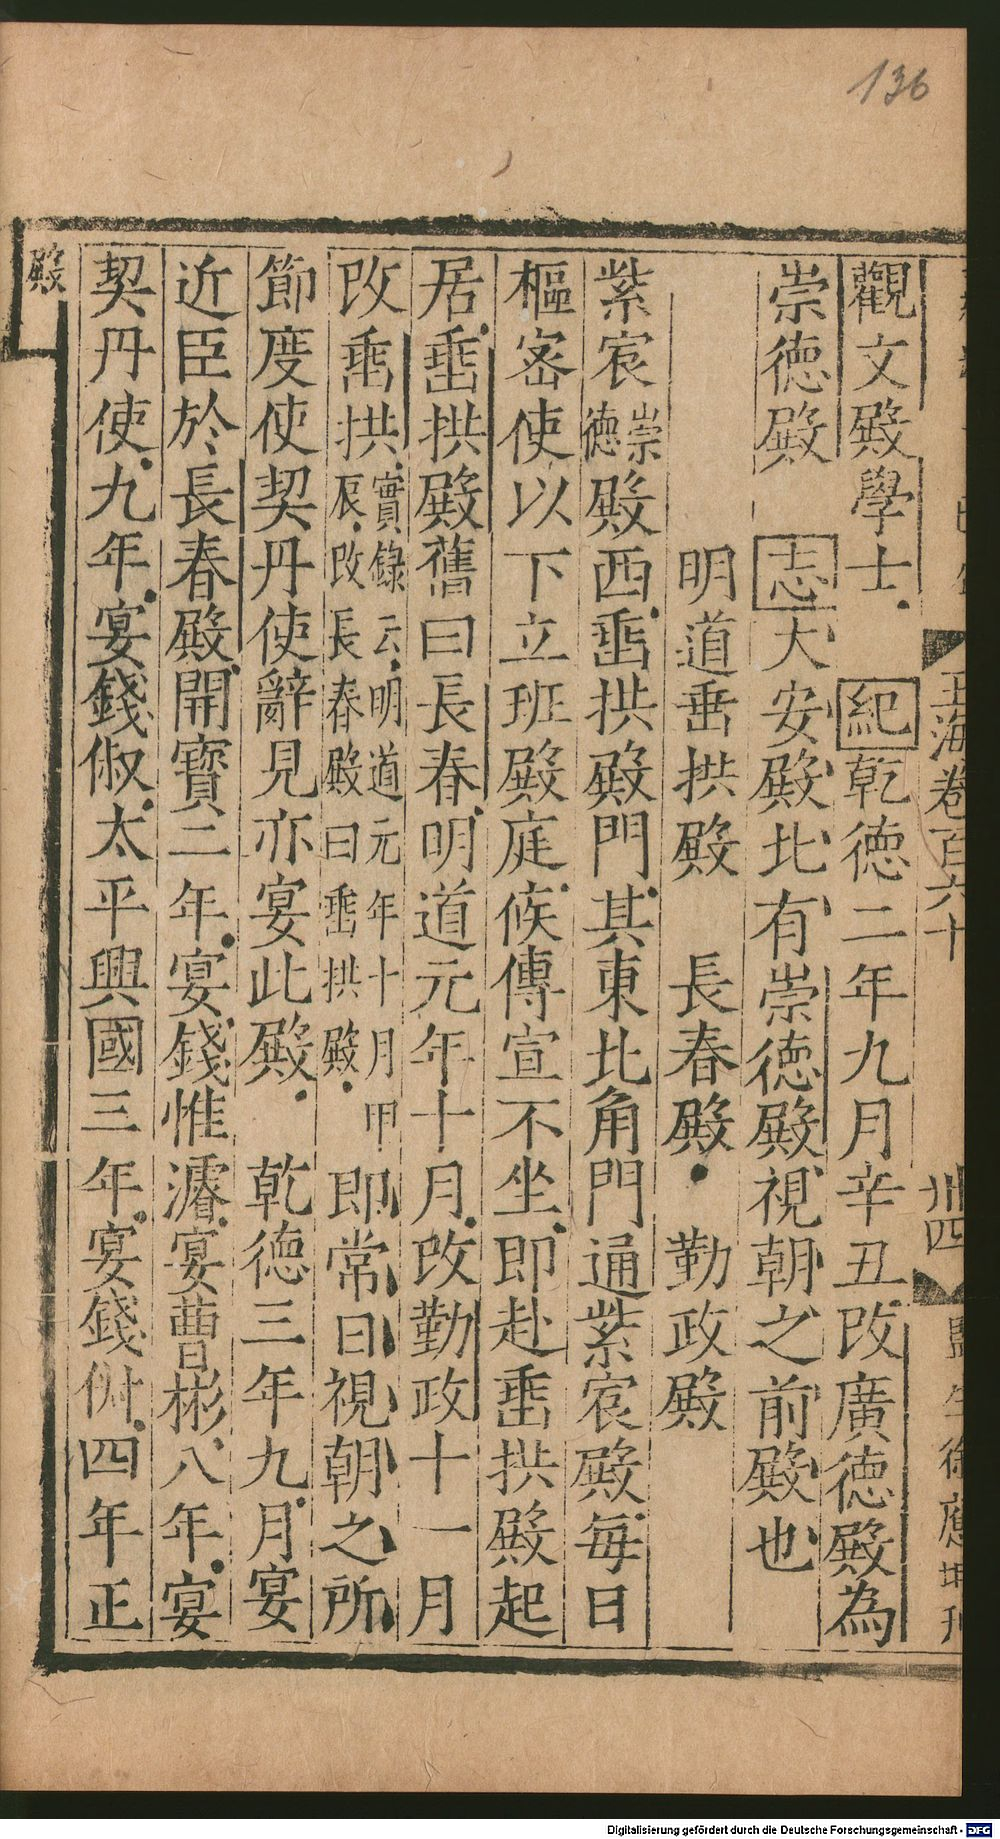 136
玉海卷百六十
卅四
觀文殿學士 紀乾德二年九月辛丑改廣德殿為
崇德殿 志大安殿北有崇德殿視朝之前殿也
明道垂拱殿 長春殿 勤政殿
紫宸崇德殿西垂拱殿門其東北角門通紫宸殿每日
樞密使以下立班殿庭候傳宣不坐即赴垂拱殿起
居垂拱殿舊曰長春明道元年十月改勤政十一月
改垂拱實錄云明道元年十月甲辰改長春殿曰垂拱殿即常日視朝之所
節度使契丹使辭見亦宴此殿 乾德三年九月宴
近臣於長春殿開寶二年宴錢惟濬宴曹彬八年宴
契丹使九年宴錢俶太平興國三年宴錢俶四年正
殿
Digitalisierung gefördert durch die Deutsche Forschungsgemeinschaft - DFG